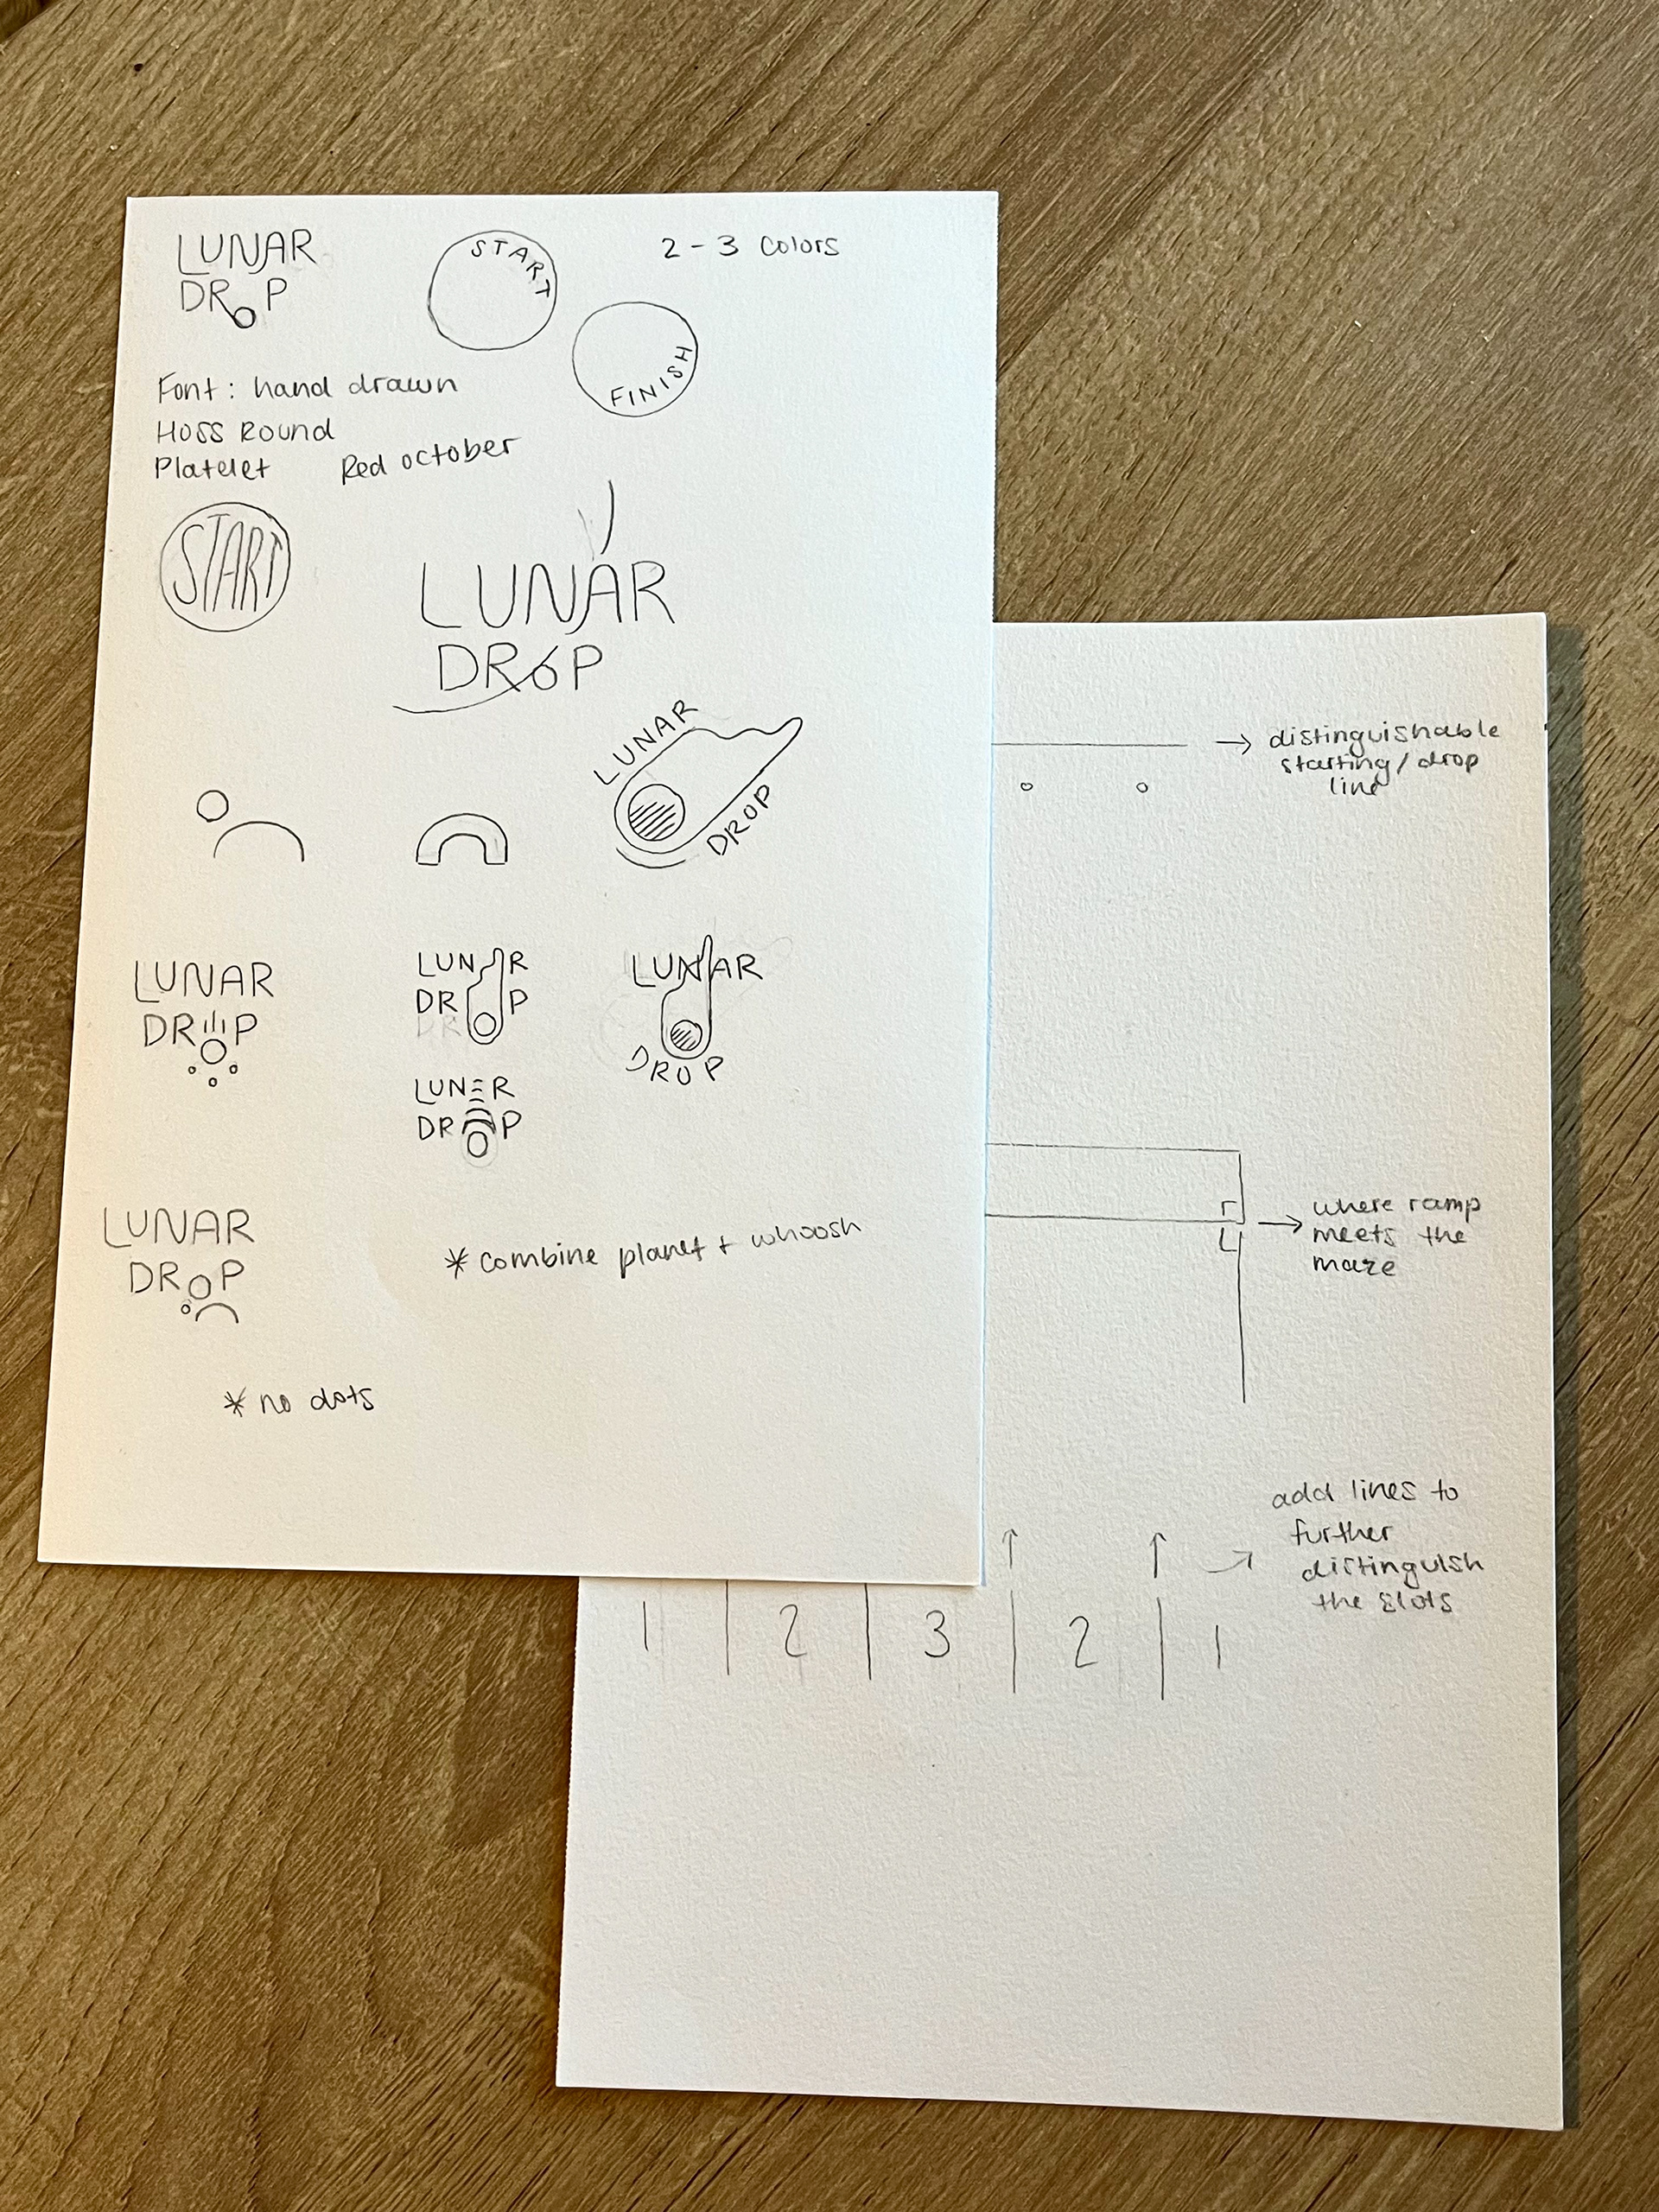 LUNAR
DROP
START
2-3 colors
FINISH
Font: hand drawn
Hoss Round
Platelet
Red october
START
LUNAR
DROP
LUNAR
DROP
LUNAR
DROP
LUNAR
DROP
LUNAR
DROP
LUNER
DROP
LUNAR
DROP
* combine planet + whoosh
* no dots
→ distinguishable
starting/drop
line
→ where ramp
meets the
maze
add lines to
further
distinguish
the slots
1 | 2 | 3 | 2 | 1